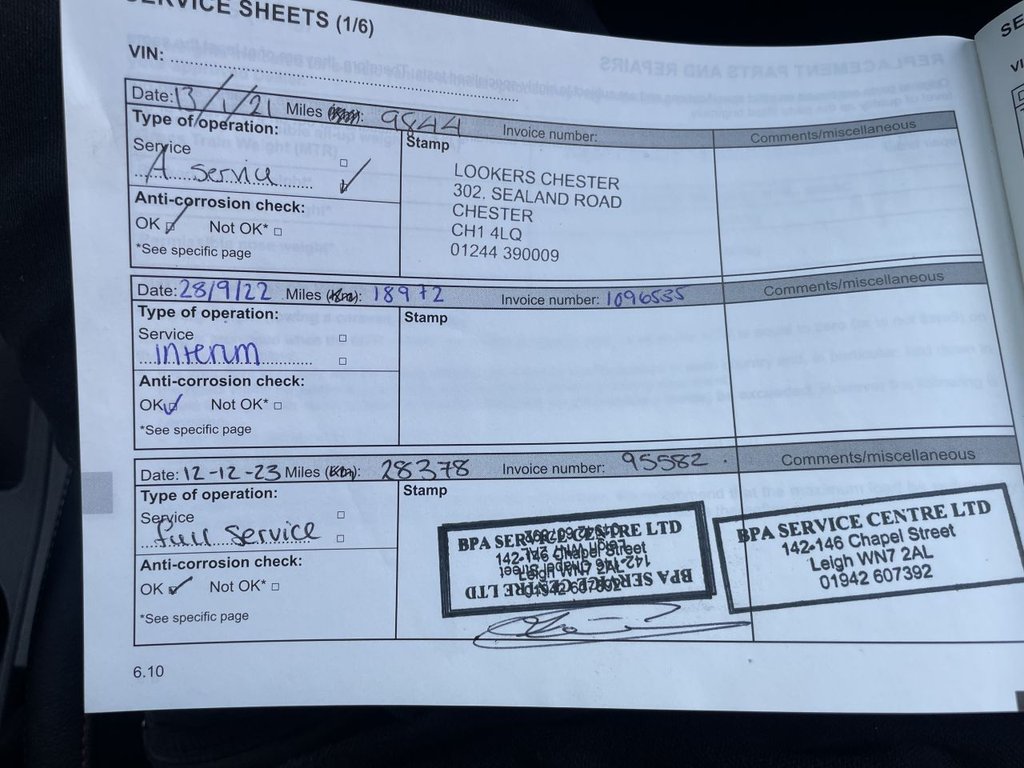 SERVICE SHEETS (1/6)
VIN:
Date: 13/1/21 Miles (km): 9844 Invoice number: Comments/miscellaneous
Type of operation:
Stamp
Service
A service
Anti-corrosion check:
OK Not OK*
*See specific page
LOOKERS CHESTER
302. SEALAND ROAD
CHESTER
CH1 4LQ
01244 390009
Date: 28/9/22 Miles (km): 18972 Invoice number: 1096535 Comments/miscellaneous
Type of operation:
Stamp
Service
interim
Anti-corrosion check:
OK Not OK*
*See specific page
Date: 12-12-23 Miles (km): 28378 Invoice number: 95582 Comments/miscellaneous
Type of operation:
Stamp
Service
Full Service
Anti-corrosion check:
OK Not OK*
*See specific page
BPA SERVICE CENTRE LTD
142-146 Chapel Street
Leigh WN7 2AL
01942 607392
BPA SERVICE CENTRE LTD
142-146 Chapel Street
Leigh WN7 2AL
01942 607392
6.10
SE
VI